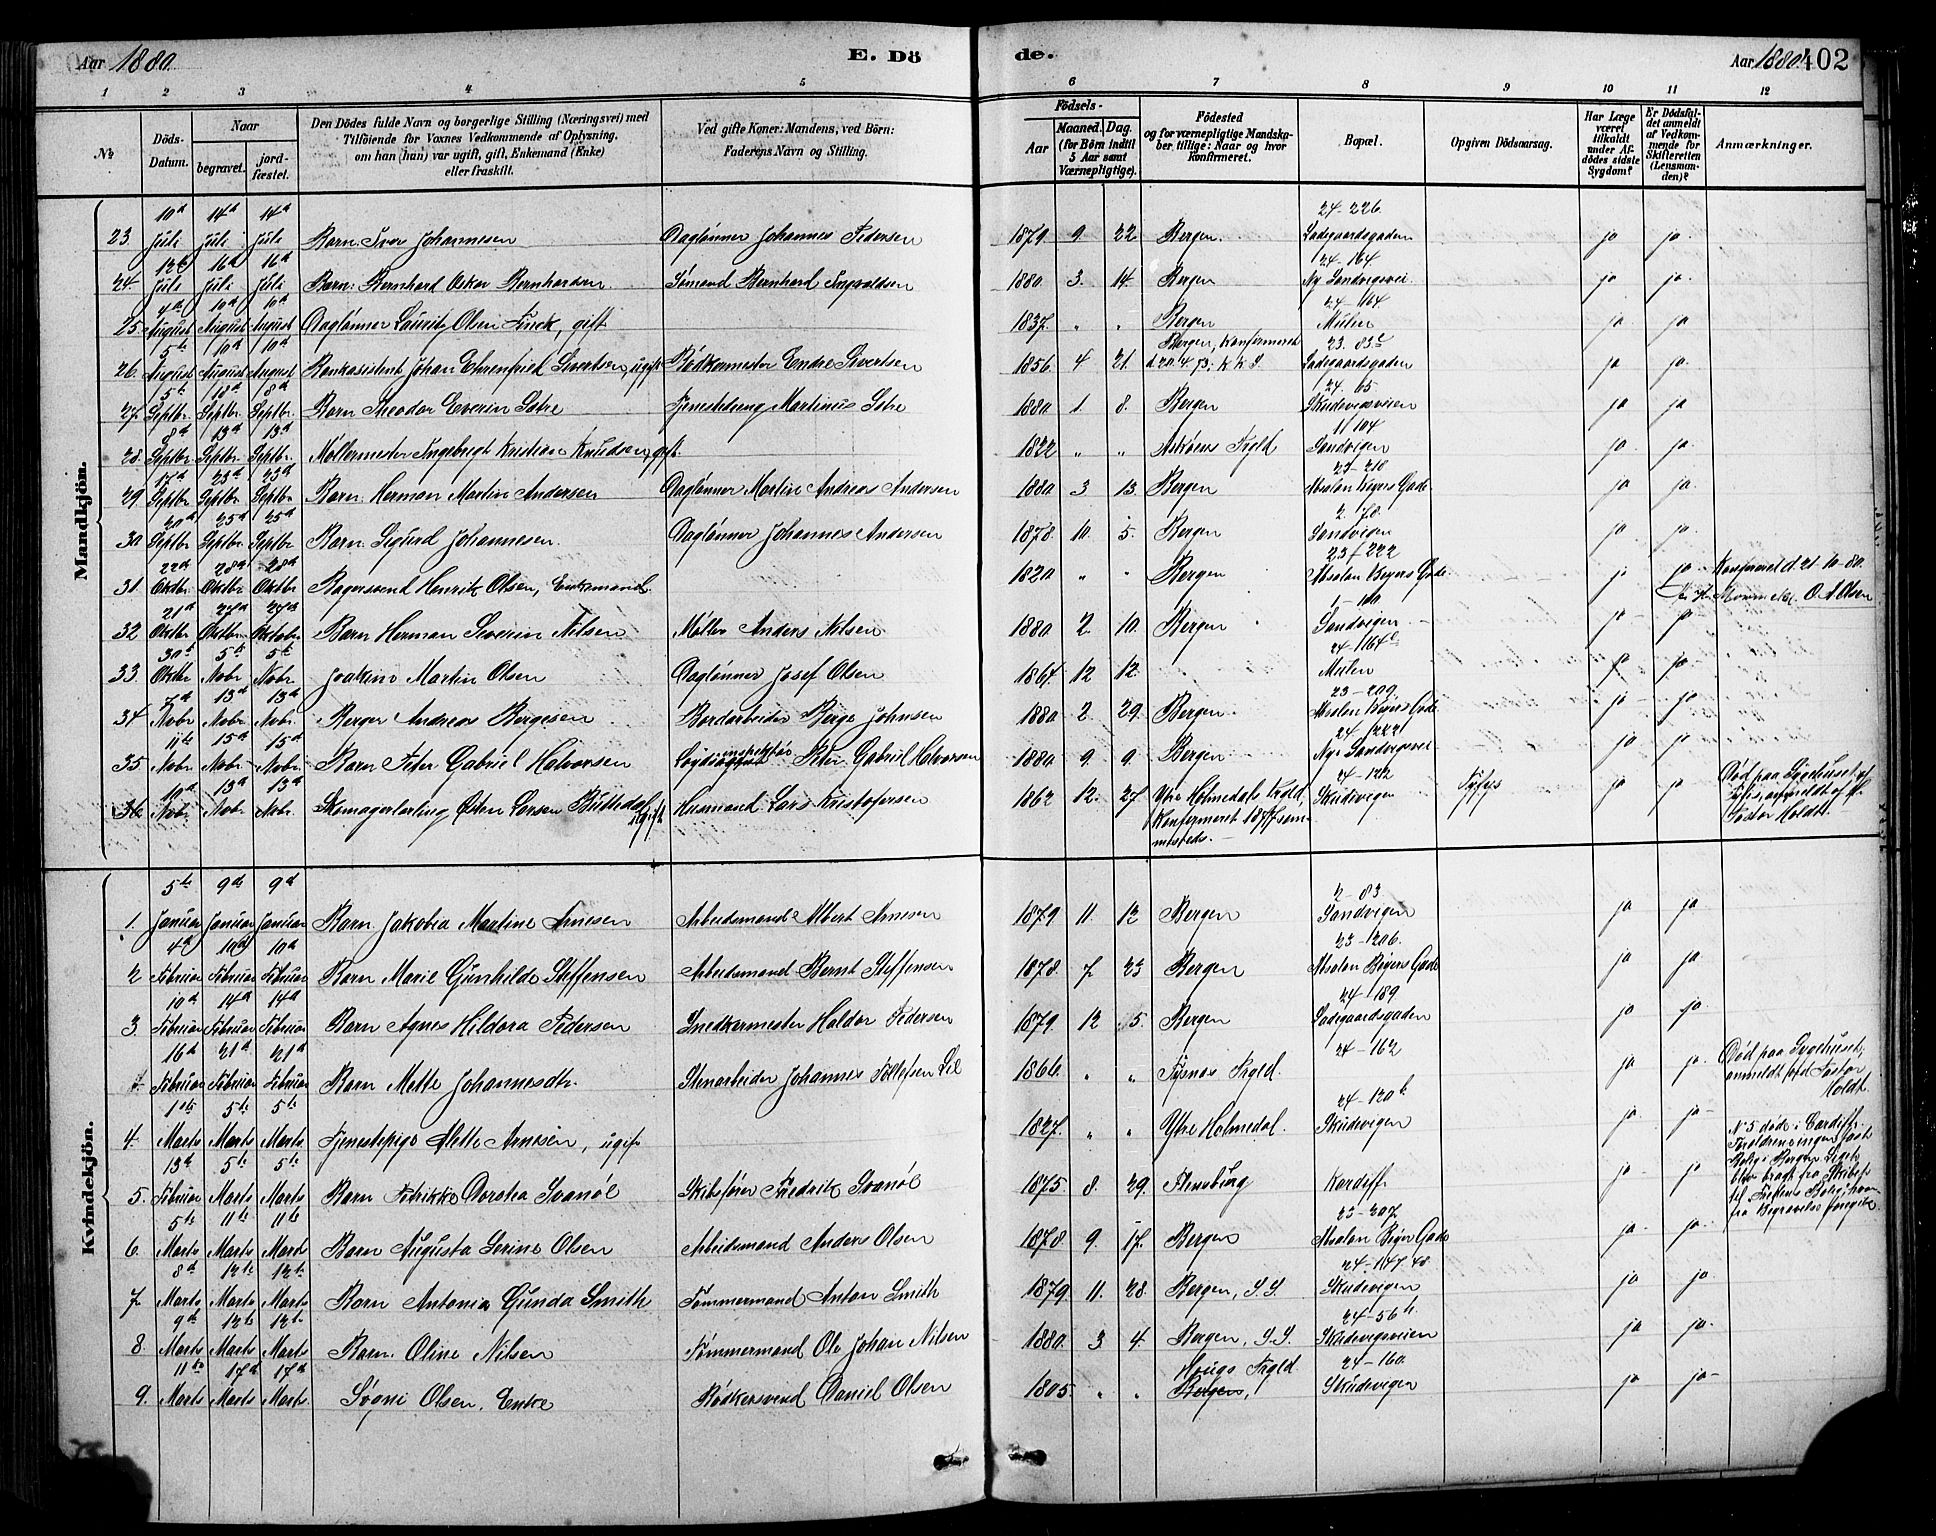 Aar 1880.
E. Dö
de.
Aar 1880.
402
1 2 3 4 5 6 7 8 9 10 11 12
№
Döds-Datum.
Naar
begravet.
jord-fæstet.
Den Dödes fulde Navn og borgerlige Stilling (Næringsvei) med
Tilföiende for Voxnes Vedkommende af Oplysning,
om han (hun) var ugift, gift, Enkemand (Enke)
eller fraskilt.
Ved gifte Koner: Mandens, ved Börn:
Faderens Navn og Stilling.
Födsels-
Aar
Maaned. Dag.
(for Börn indtil
5 Aar samt
Værnepligtige).
Födested
og for værnepligtige Mandska-
ber tillige: Naar og hvor
konfirmeret.
Bopæl.
Opgiven Dödsaarsag.
Har Læge
været
tilkaldt
under Af-
dödes sidste
Sygdom?
Er Dödsfal-
det anmeldt
af Vedkom-
mende for
Skifteretten
(Lensman-
den)?
Anmærkninger.
Mandkjön.
23 10d Juli 14d Juli 14d Juli Barn: Iver Johannesen Daglønner Johannes Pedersen 1879 9 22 Bergen 24-226. Ladegaardsgaden jo jo
24. 12te Juli 16d Juli 16d Juli Barn: Bernhard Oskar Bernhardsen Sømand Bernhard Ingvaldsen 1880. 3. 14. Bergen 24-164. Ny Sandvigsvei ja ja
25. 4de August 10d August 10d August Daglønner Lauritz Olsen Finck, gift 1837. " " Bergen 24-164 Mulen ja ja
26. 5te August 10d August 10d August Bankasistent Johan Ehrenfried Sivertsen, ugift Bødkermester Endre Sivertsen 1856 4 21. Bergen, konfirmeret d 20/4 73. K K S. 23. 83c Ladegaardsgaden ja ja
27. 5te Septbr. 10d Septbr. 8d Septbr. Barn Theodor Everin Sotre Tjenestedreng Martinus Sotre 1880. 1 8. Bergen 24. 65 Skudevigsveien ja ja
28. 8d Septbr. 13d Septbr. 13d Septbr. Møllermester Ingebrigt Kristian Knudsen, gift. 1822 " " Askøens Prgld 11 104 Sandvigen jo jo
29. 17d Septbr 23d Septbr. 23d Septbr Barn: Herman Martin Andersen Dagløner Martin Andreas Andersen 1880 3 13. Bergen 23-210 Absalon Beyers Gade ja ja
30 20d Septbr 25d Septbr 25d Septbr Barn: Sigurd Johannesen. Dagløner Johannes Andersen 1878. 10. 5. Bergen 2. 78. Sandvigen jo jo
31. 22d Oktbr. 28d Oktbr. 28d Oktbr. Bagersvend Henrik Olsen, Enkemand. 1820. " " Bergen 23-222 Absalon Beyers Gade. ja jo Konfereret d. 21-10-80.
32. 21d Oktbr. 27de Oktbr. 27de Oktobr. Barn Herman Severin Nilsen Møller Anders Nilsen 1880. 2. 10. Bergen 1-100 Sandvigen jo jo
33. 30te Oktbr 5te Nobr 5te Nobr. Joakim Martin Olsen Dagløner Josef Olsen 1864 12 12. 24-164c Mulen jo jo
34 7d Nobr 13d Nobr. 13d Nobr. Berger Andreas Bergesen Bordarbeider Berge Johnsen 1880 2. 29. Bergen 23-209. Absalon Beyers Gade jo jo
35 11te Nobr. 15d Nobr 15d Nobr. Barn Peter Gabriel Halvorsen inspektør Peter Gabriel Halvorsen 1880 9. 9. Bergen 24-222 Nye Sandvigsvei jo jo
36 10d Nobr. 13d Nobr. 13d Nobr. Skomagerlærling Østen Larsen ugift Husmand Lars Kristofersen 1862 12. 27 Ytre Holmedals Prgld, Konfirmeret sammesteds. 24-122 Skudevigen Tyfus jo jo Død paa Sygehuset af Tyfus, anmeldt af Pastor Holdt.
Kvindekjön.
1. 5te Januar 9de Januar 9d Januar Barn Jakobia Martine Arnesen Arbeidsmand Albert Arnesen 1879 11. 12 Bergen 2-83 Sandvigen ja ja
2 4d Februar 10d Februar 10d Februar Barn Marie Gunhilde Steffensen Arbeidsmand Bernt Steffensen 1878. 7 23 Bergen 23-1206. Absalon Beyers Gade ja ja
3. 10d Februar 14d Februar 14d Februar Barn Agnes Hildora Pedersen Snedkermester Haldor Pedersen 1879. 12 5. Bergen 24-189 Ladegaardsgaden jo jo
16d Februar 21d Februar 21d Februar Barn Mette Johannesdtr. Stenarbeider Johannes Tollefsen 1866. " " Tysnæs Prgld. 24-162 ja jo Død paa Sygehuset, anmeldt ved Pastor Holdt.
4. 1ste Marts 5te Marts 5te Marts Tjenestepige Mette Arnesen, ugift 1827. " " Ytre Holmedal. 24-120b Skudevigen jo ja
5. 13d Februar 5te Marts 5te Marts Barn Fredrikke Dorotea Svanöe Skibsfører Fredrik Svanöe 1875 8. 29. Flensburg Kardiff jo jo N 5 døde i Cardiff. Forældrene ingen fast Bolig i Bergen. Liget blev bragt fra Skibet til
6. 5te Marts 11te Marts 11te Marts Barn Augusta Serine Olsen Arbeidsmand Anders Olsen 1878 9. 17. Bergen 23-207 Absalon Beyer Gade ja ja
7. 8d Marts 12te Marts 12te Marts Barn Antonia Gunda Smith Tømmermand Anton Smith 1879. 11. 28. Bergen, S.S. 24-147.48 Skudevigen jo jo
8. 9de Marts 12te Marts 12te Marts Barn: Oline Nilsen Tømmermand Ole Johan Nilsen 1880. 3. 4. Bergen, S.S. 24-56 Skudevigsveien ja jo
9. 11te Marts 17d Marts 17d Marts. Søgni Olsen. Enke Bødkersvend Daniel Olsen 1805. " " Hougs Prgld Bergen, 24-160. Skudevigen ja jo